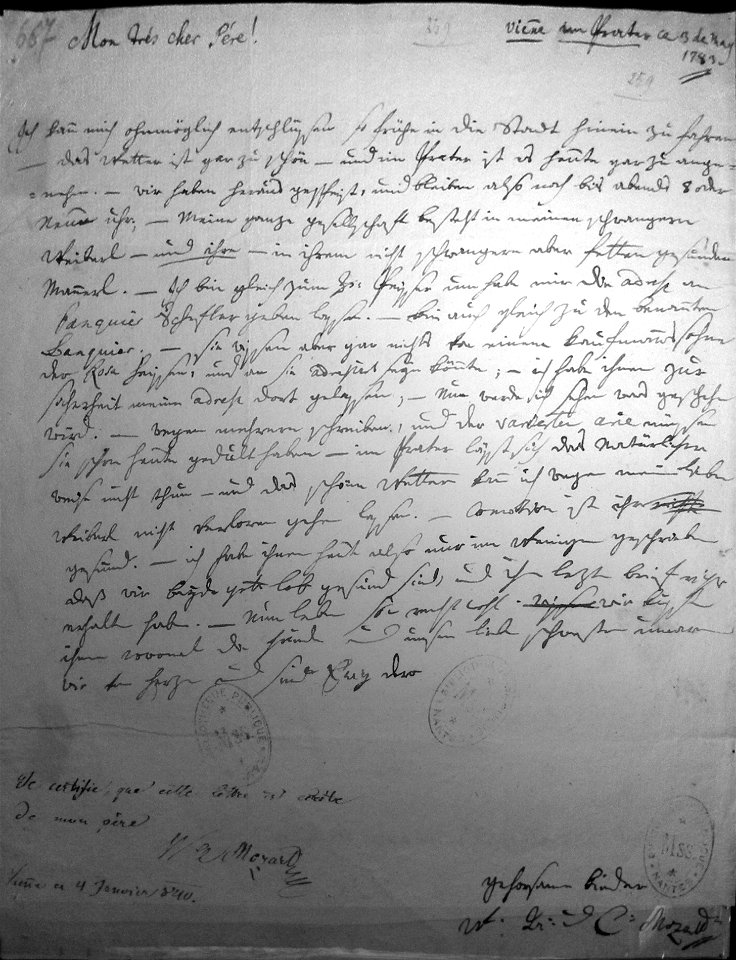 667 Mon trés cher Pére! 259 vieñe au Prater ce 3 de may
1783.
259
Ich kañ mich ohnmöglich entschlüssen so frühe in die Stadt hinein zu fahren
– das Wetter ist gar zu schön – und im Prater ist es heute gar zu ange-
=nehm. – wir haben heraus gespeist, und bleiben also noch bis abends 8 oder
Neun uhr, – Meine ganze gesellschaft besteht in meinem schwangern
Weiberl – und ihre – in ihrem nicht schwangern aber fetten gesunden
Mannerl. – Ich bin gleich zum H: habe mir die adresse an
Banquier Scheffler geben lassen. – bin auch gleich zu dem benannten
Banquier; – sie wissen aber gar nichts von einem kaufmannssohne
der Rosa heissen, und an sie adressirt seyn könnte; – ich habe ihnen zur
sicherheit meine adresse dort gelassen; – Nun werde ich sehen was geschehen
wird. – wegen mehrern schreiben, und der varirten arie müssen
Sie schon heute gedult haben – im Prater lässt sich das Natürlicher
weise nicht thun – und das schöne Wetter kañ ich wegen meinem lieben
Weiberl nicht verloren gehen lassen. – motion ist ihr
gesund. – ich habe ihnen heut also nur ein weniges geschrieben
daß wir beyde gott lob gesund sind, und ihren letzten brief richtig
erhalten haben. – Nun leben sie recht wohl. wir küssen
ihnen die hände und unsere liebe schwester umarmen
wir von herzen und sind Ewig dero
BIBLIOTHEQUE PUBLIQUE
Je certifie que cette lettre est
de mon père
W A Mozart
Vieñe ce 4 Janvier 1840.
Mss.
NANTES
gehorsamste kinder
W: A: und C: Mozart